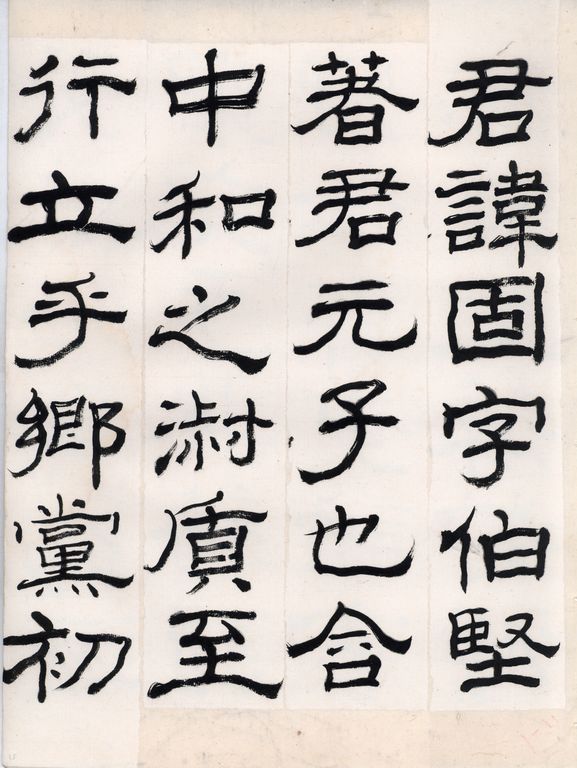 君諱固字伯堅
著君元子也含
中和之淑質至
行立乎鄉黨初